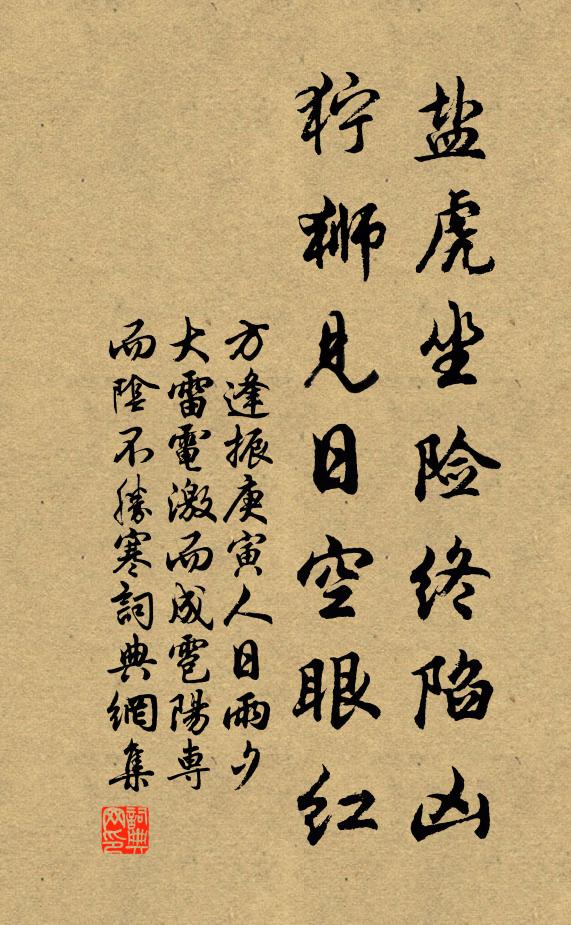 盐虎坐险终陷凶
狞狮见日空眼红
方逢振庚寅人日雨夕
大雷電激而成雹陽専
而陰不勝寒詞典網集
詞典
网印